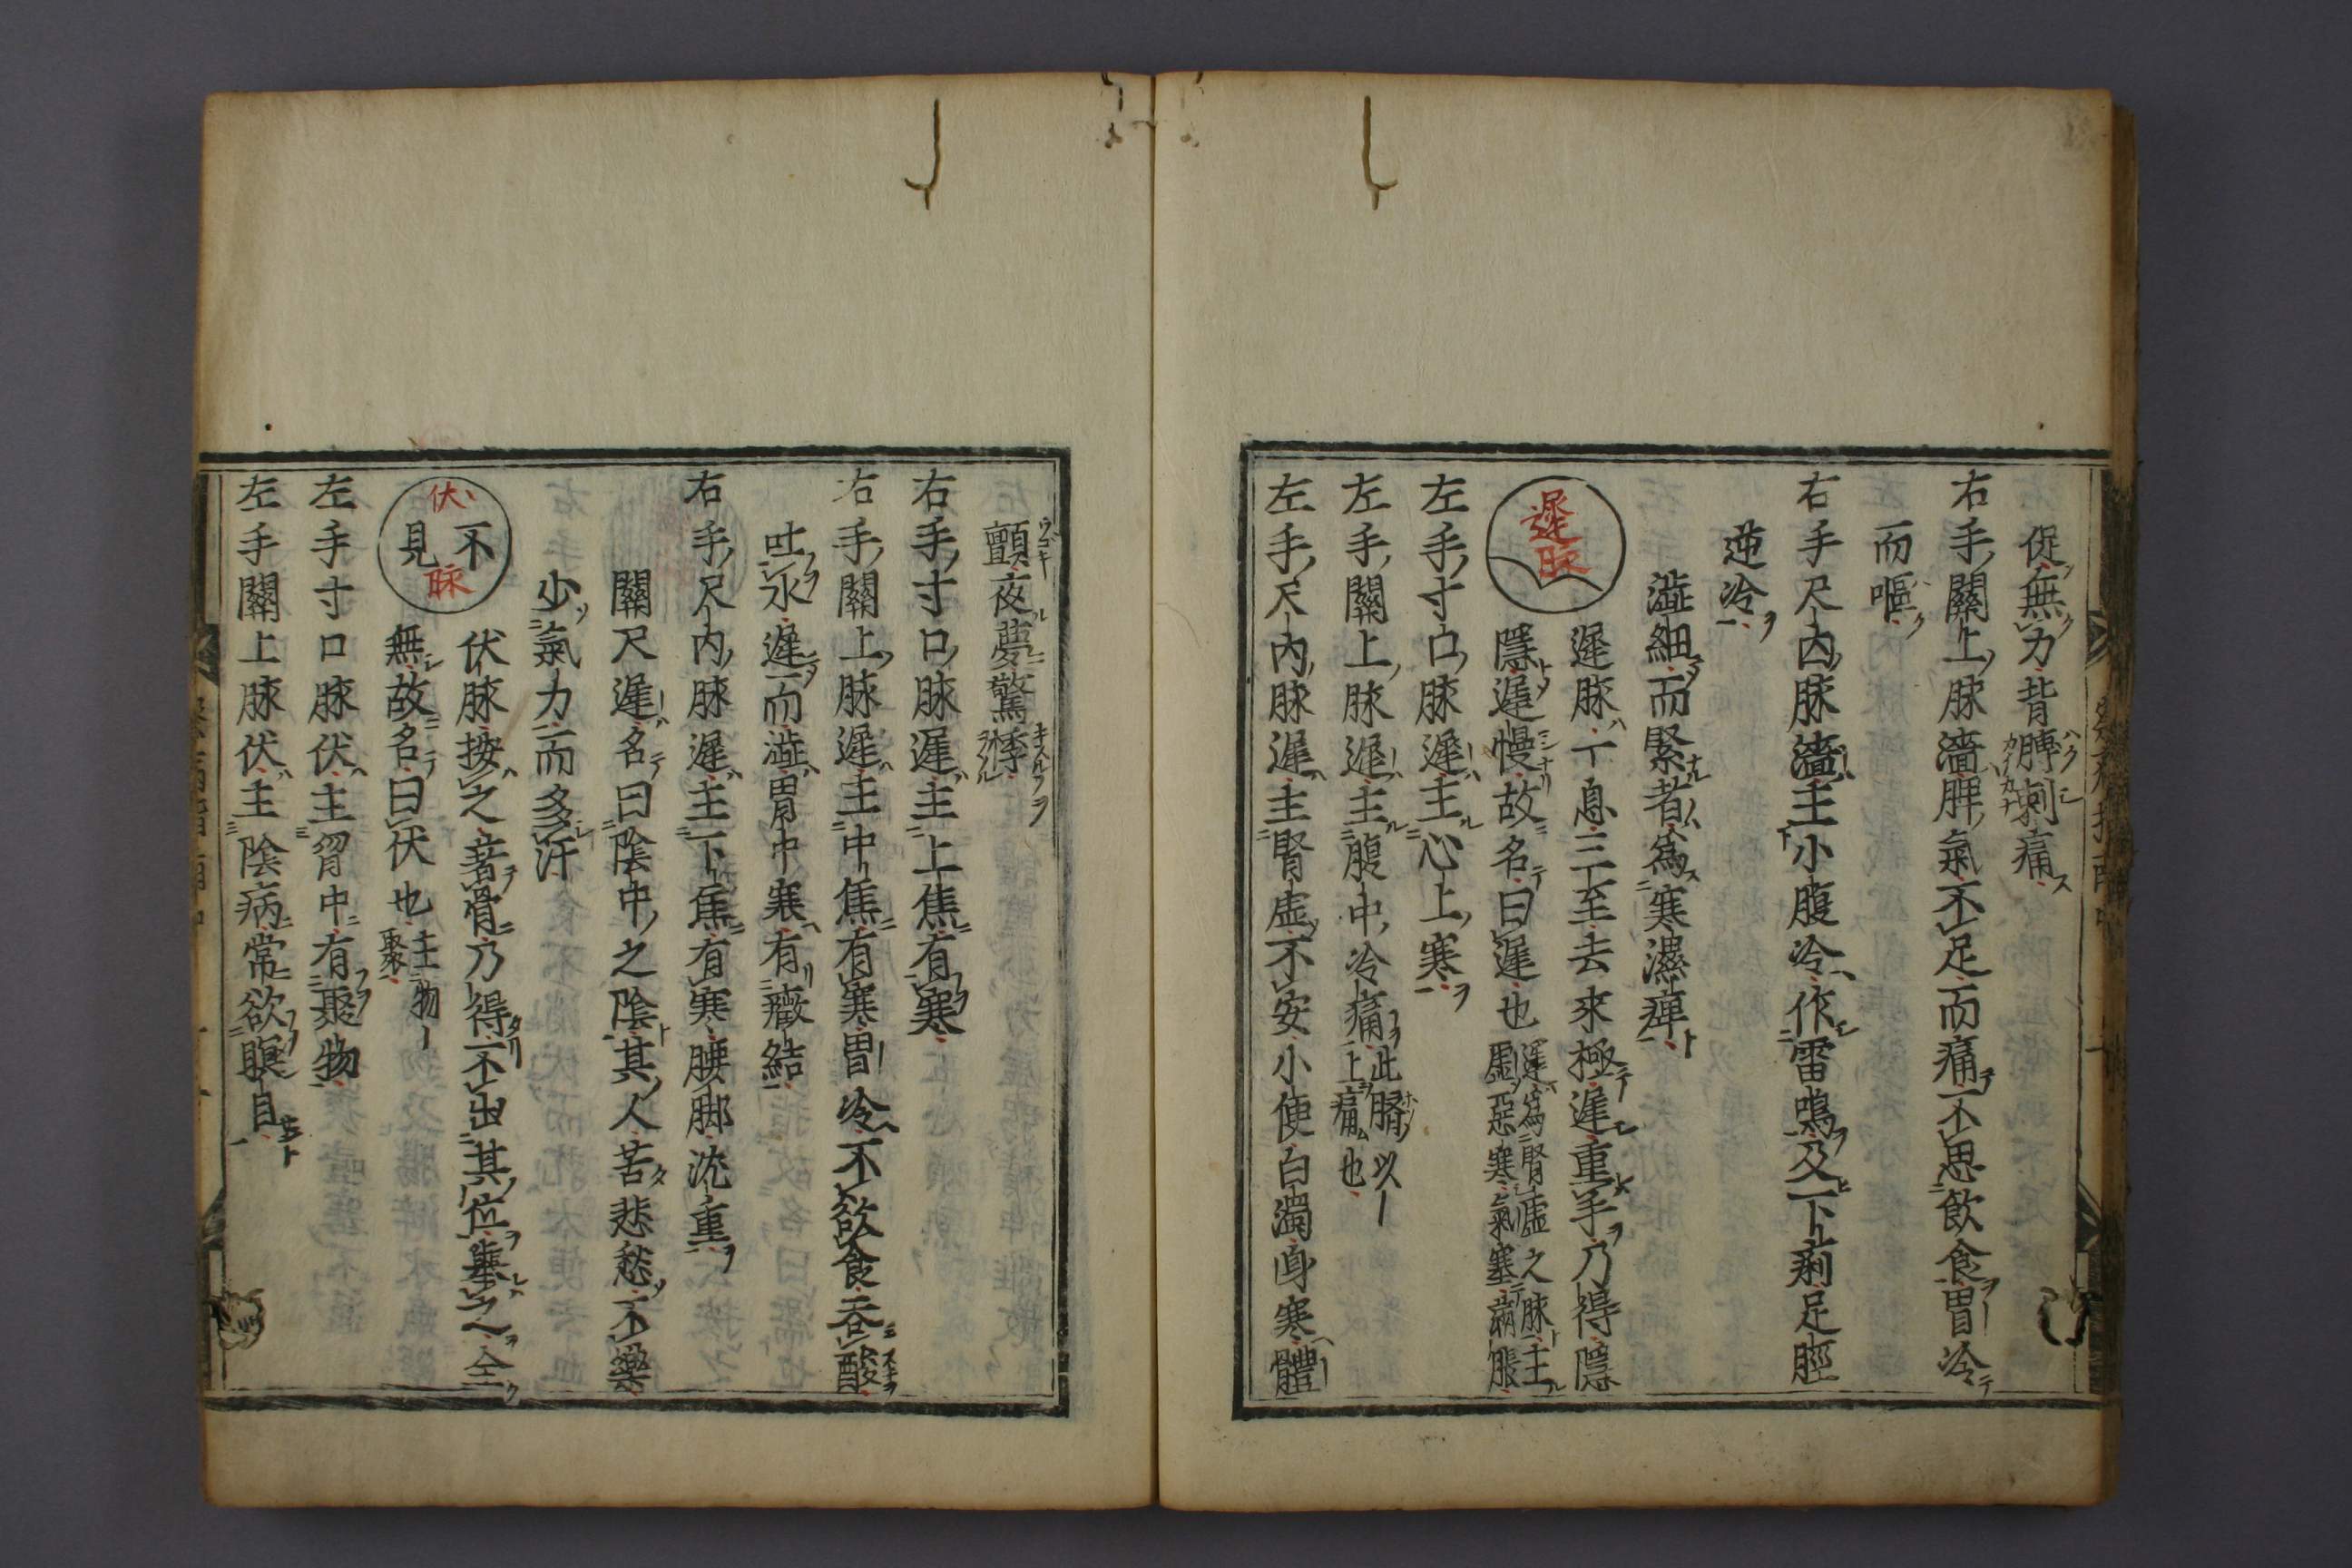 促無力背膊刺痛
右手關上脉濇脾氣不足而痛不思飲食胃冷
而嘔
右手尺内脉濇主小腹冷作雷鳴及下痢足脛
逆冷
澁細而緊者爲寒濕痺
遲脉
遲脉一息三至去來極遲重手乃得隱
隱遲慢故名曰遲也
遲爲腎虛之脉主
虛惡寒氣塞滿脹
左手寸口脉遲主心上寒
左手關上脉遲主腹中冷痛
此臍以
上痛也
左手尺内脉遲主腎虛不安小便白濁身寒體
顫夜夢驚悸
右手寸口脉遲主上焦有寒
右手關上脉遲主中焦有寒胃冷不欲食吞酸
吐水遲而澁胃中寒有癥結
右手尺内脉遲主下焦有寒腰脚沈重
關尺遲名曰陰中之陰其人苦悲愁不樂
少氣力而多汗
伏脉
不見
伏脉按之著骨乃得不出其位舉之全
無故名曰伏也
主物
聚
左手寸口脉伏主胷中有聚物
左手關上脉伏主陰病常欲瞑目